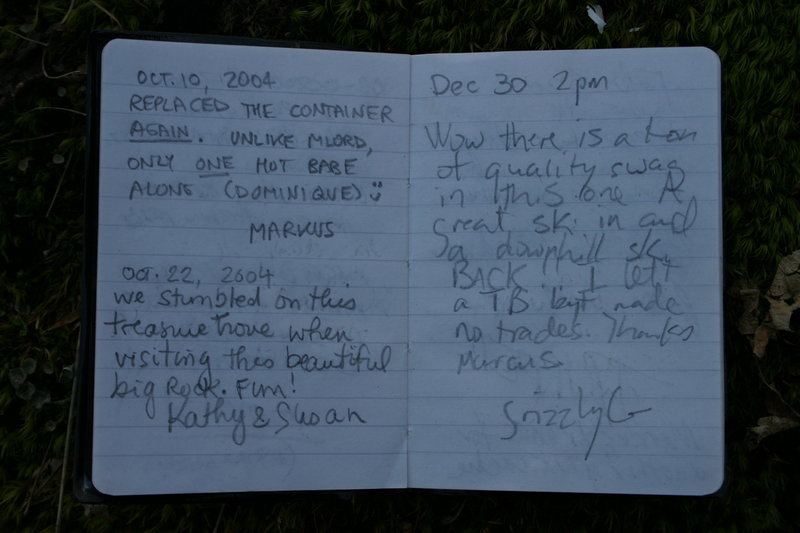 OCT. 10, 2004
REPLACED THE CONTAINER
AGAIN. UNLIKE MLORD,
ONLY ONE HOT BABE
ALONG (DOMINIQUE)
MARKUS
Oct. 22, 2004
we stumbled on this
treasure trove when
visiting this beautiful
big Rock. Fun!
Kathy & Susan
Dec 30 2pm
Wow there is a ton
of quality swag
in this one. A
great ski in and
a downhill ski
BACK! I left
a TB but made
no trades. Thanks
Marcus.
GrizzlyG